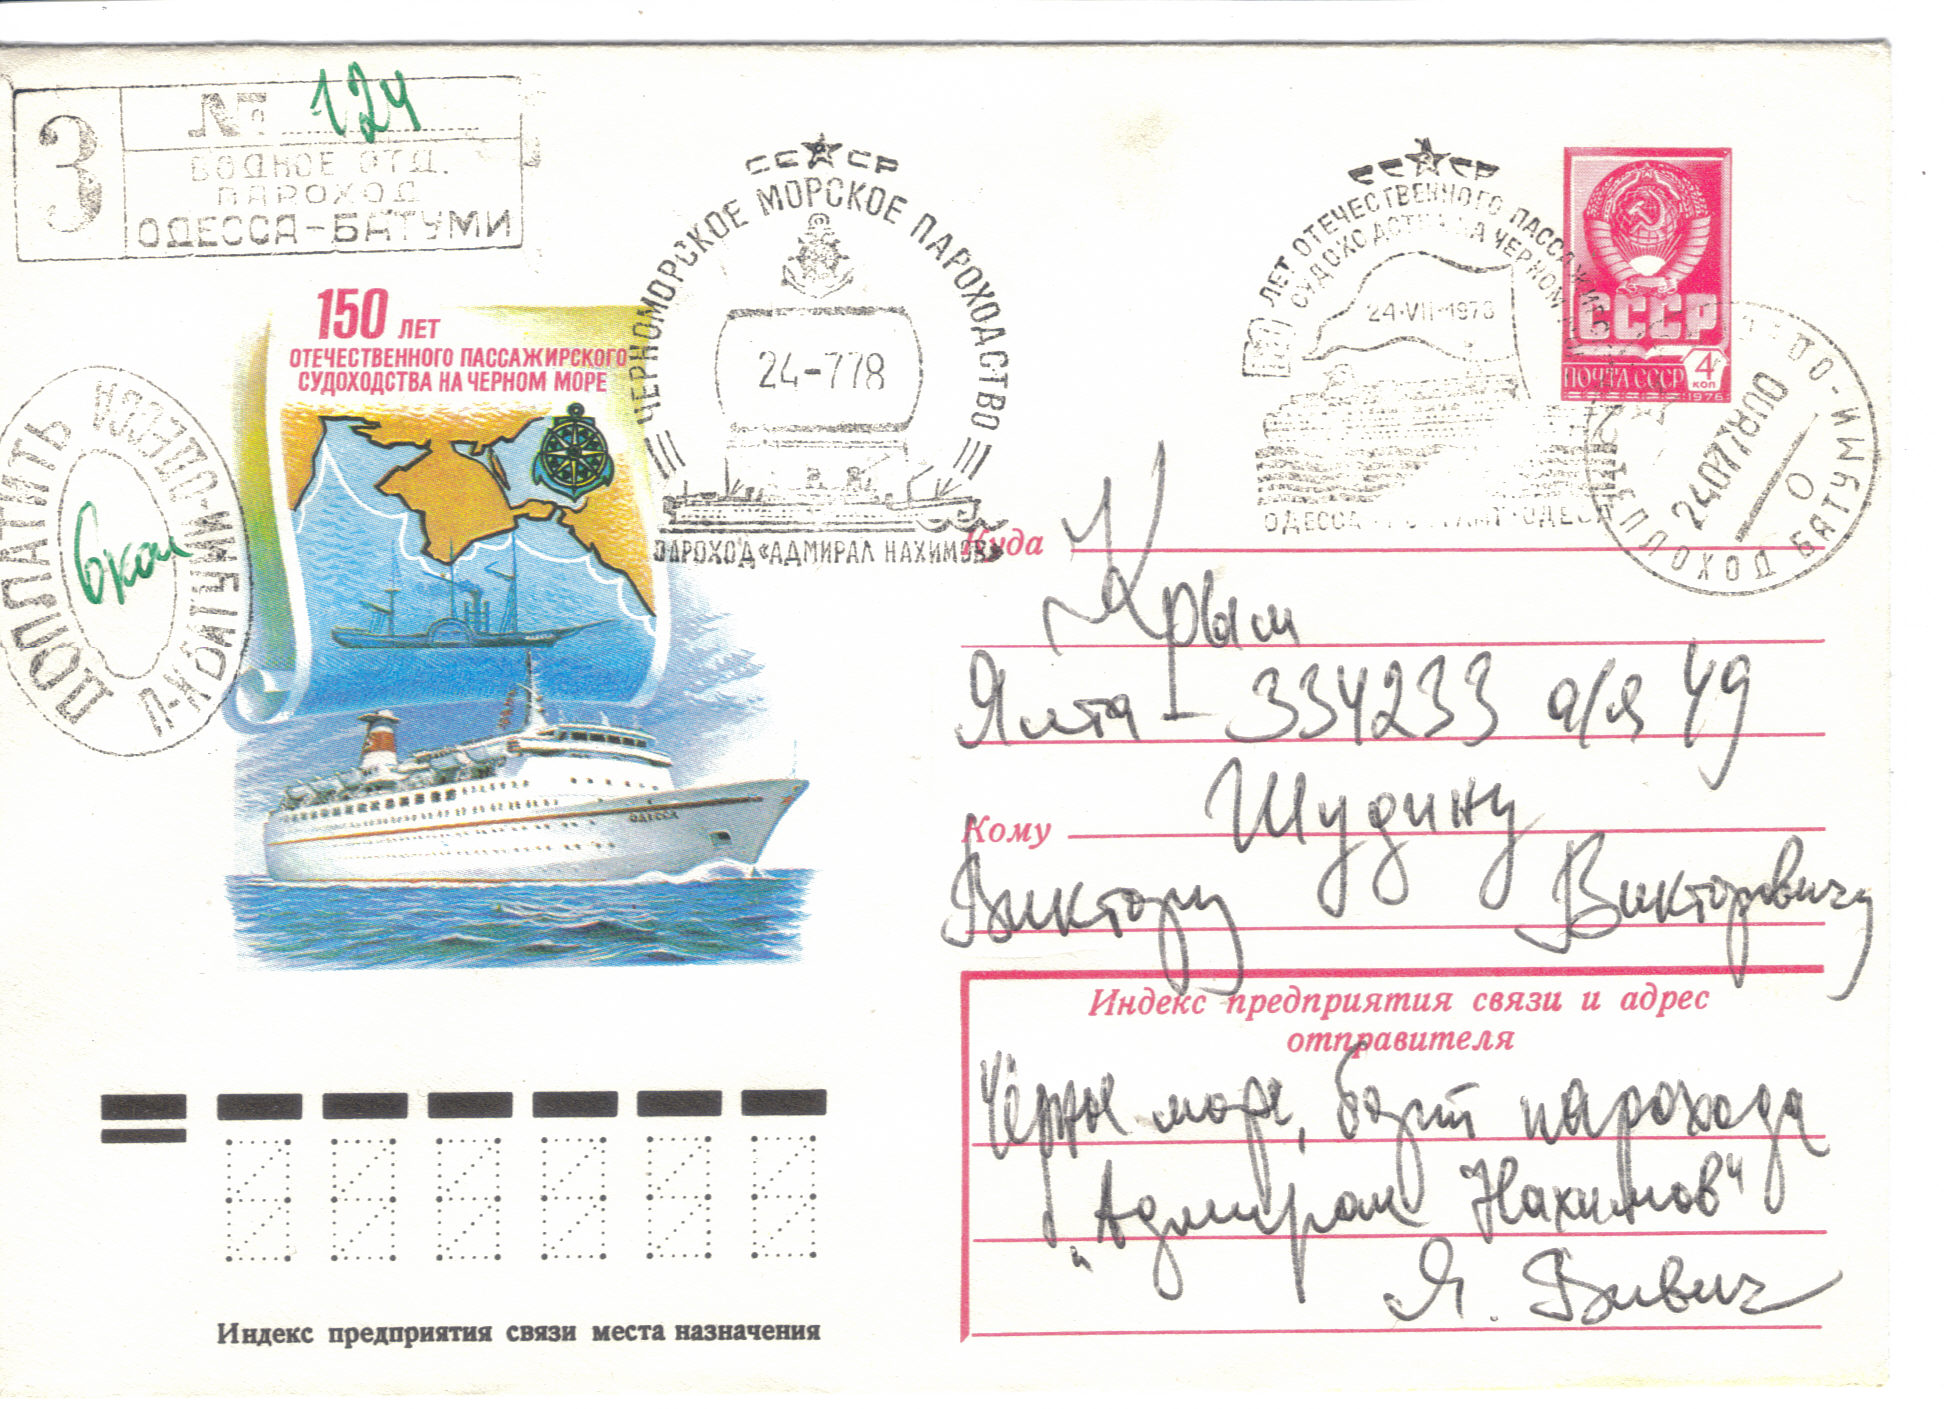 З
№ 124
ВОДНОЕ ОТД.
ПАРОХОД
ОДЕССА-БАТУМИ
150 ЛЕТ
ОТЕЧЕСТВЕННОГО ПАССАЖИРСКОГО
СУДОХОДСТВА НА ЧЕРНОМ МОРЕ
ОДЕССА
ДОПЛАТИТЬ
6 коп
СССР
ЧЕРНОМОРСКОЕ МОРСКОЕ ПАРОХОДСТВО
24-778
ПАРОХОД «АДМИРАЛ НАХИМОВ»
СССР
ЛЕТ ОТЕЧЕСТВЕННОГО ПАССАЖИРСКОГО
СУДОХОДСТВА НА ЧЕРНОМ
24·VII·1978
ОДЕССА
СССР
4 КОП
ПОЧТА СССР
1976
2407781800
0
ТЕПЛОХОД БАТУМИ
Куда
Крым
Ялта - 334233 а/я 49
Кому Шудину
Виктору Викторовичу
Индекс предприятия связи и адрес
отправителя
Чёрное море, борт парохода
„Адмирал Нахимов"
Я.
Индекс предприятия связи места назначения